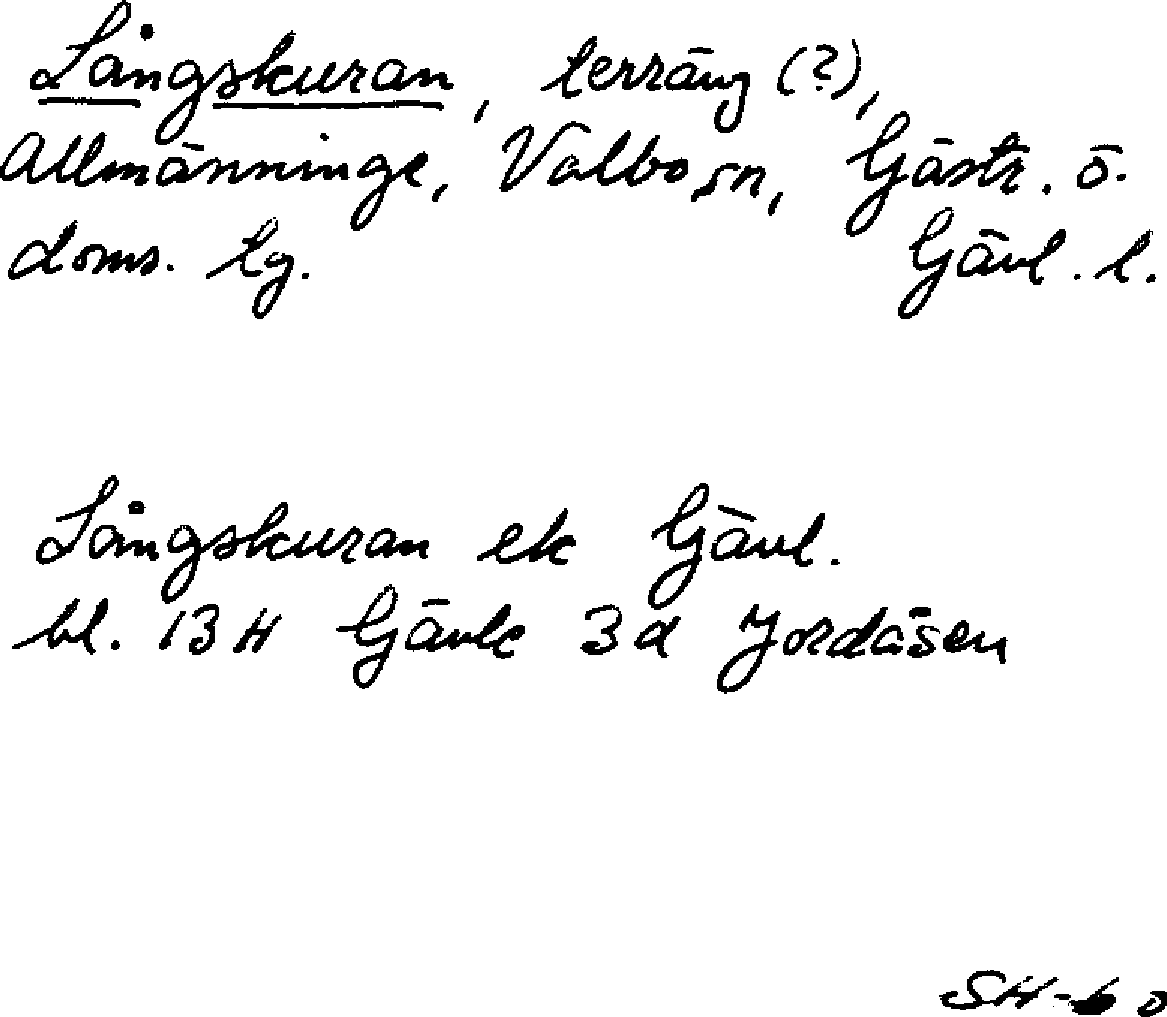 Långskuran, terräng (?),
Allmänninge, Valbo sn, Gästr. ö.
doms. tg. Gävl. l.
Långskuran ek Gävl.
bl. 13 H Gävle 3d Jordåsen